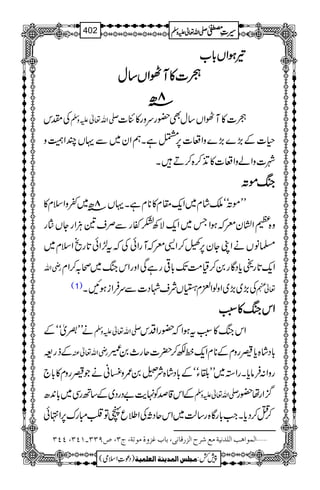 سیرتِ مصطفیٰ صلی اللہ تعالیٰ علیہ وسلم 402
تیرہواں باب
ہجرت کا آٹھواں سال
۸ھ
ہجرت کا آٹھواں سال بھی حضور سرور کائنات صلی اللہ تعالیٰ علیہ وسلم کی مقدس
حیات کے بڑے بڑے واقعات پر مشتمل ہے۔ ہم ان میں سے یہاں چند اہمیت و
شہرت والے واقعات کا تذکرہ کرتے ہیں۔
جنگِ موتہ
’’موتہ‘‘ ملک شام میں ایک مقام کا نام ہے۔ یہاں ۸ھ میں کفر و اسلام کا
وہ عظیم الشان معرکہ ہوا جس میں ایک لاکھ لشکر کفار سے صرف تین ہزار جاں نثار
مسلمانوں نے اپنی جان پر کھیل کر ایسی معرکہ آرائی کی کہ یہ لڑائی تاریخ اسلام میں
ایک تاریخی یادگار بن کر قیامت تک باقی رہے گی اور اس جنگ میں صحابہ کرام رضی اللہ
تعالیٰ عنہم کی بڑی بڑی اولوالعزم ہستیاں شرفِ شہادت سے سرفراز ہوئیں۔ (1)
اس جنگ کا سبب
اس جنگ کا سبب یہ ہوا کہ حضور اقدس صلی اللہ تعالیٰ علیہ وسلم نے ’’بصریٰ‘‘ کے
بادشاہ یا قیصر روم کے نام ایک خط لکھ کر حضرت حارث بن عمیر رضی اللہ تعالیٰ عنہ کے ذریعہ
روانہ فرمایا۔ راستہ میں ’’بلقاء‘‘ کے بادشاہ شرحبیل بن عمرو غسانی نے جو قیصر روم کا باج
گزار تھا حضور صلی اللہ تعالیٰ علیہ وسلم کے اس قاصد کو نہایت بے دردی کے ساتھ رسی میں باندھ
کر قتل کر دیا۔ جب بارگاہ رسالت میں اس حادثہ کی اطلاع پہنچی تو قلب مبارک پر انتہائی
1……المواهب اللدنية مع شرح الزرقانی، باب غزوة موتة، ج۳، ص۳۳۹۔۳۴۱، ۳۴۴
پیش کش: مجلس المدینة العلمية (دعوتِ اسلامی)